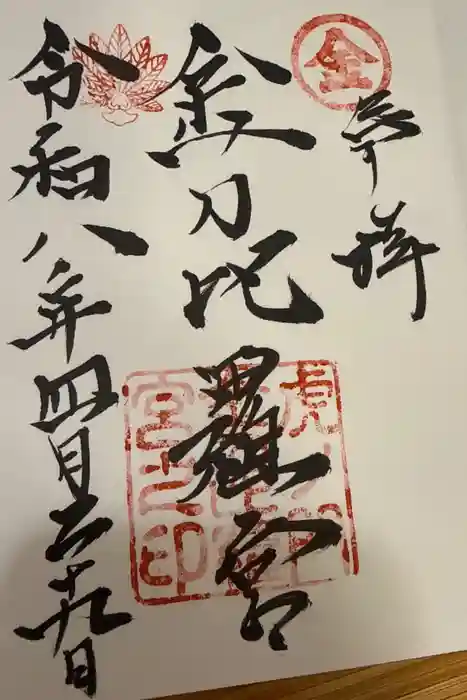 金
奉拝
金刀比羅宮
虎ノ門
宮之印
令和八年四月二十九日